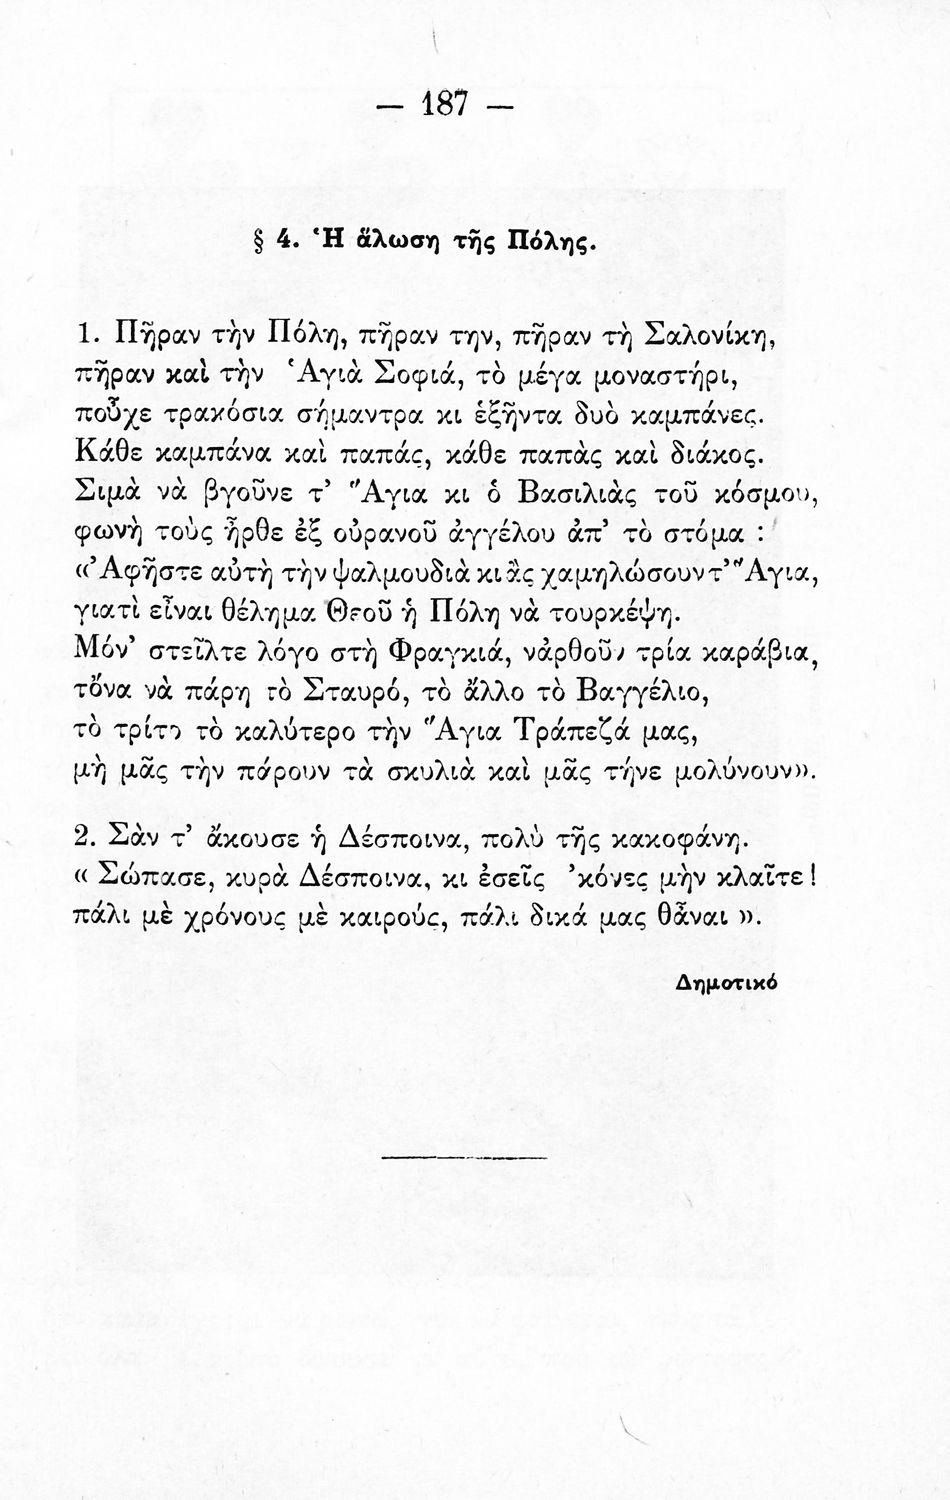 — 187 —
§ 4. Ἡ ἅλωση τῆς Πόλης.
1. Πῆραν τὴν Πόλη, πῆραν την, πῆραν τὴ Σαλονίκη,
πῆραν καὶ τὴν Ἁγιὰ Σοφιά, τὸ μέγα μοναστήρι,
ποὖχε τρακόσια σήμαντρα κι ἑξῆντα δυὸ καμπάνες.
Κάθε καμπάνα καὶ παπάς, κάθε παπὰς καὶ διάκος.
Σιμὰ νὰ βγοῦνε τ’ Ἅγια κι ὁ Βασιλιὰς τοῦ κόσμου,
φωνὴ τοὺς ἦρθε ἐξ οὐρανοῦ ἀγγέλου ἀπ’ τὸ στόμα :
«Ἀφῆστε αὐτὴ τὴν ψαλμουδιὰ κι ἂς χαμηλώσουν τ’ Ἅγια,
γιατὶ εἶναι θέλημα Θεοῦ ἡ Πόλη νὰ τουρκέψη.
Μόν’ στεῖλτε λόγο στὴ Φραγκιά, νἀρθοῦν τρία καράβια,
τὄνα νὰ πάρη τὸ Σταυρό, τὸ ἄλλο τὸ Βαγγέλιο,
τὸ τρίτο τὸ καλύτερο τὴν Ἅγια Τράπεζά μας,
μὴ μᾶς τὴν πάρουν τὰ σκυλιὰ καὶ μᾶς τήνε μολύνουν».
2. Σὰν τ’ ἄκουσε ἡ Δέσποινα, πολὺ τῆς κακοφάνη.
« Σώπασε, κυρὰ Δέσποινα, κι ἐσεῖς ’κόνες μὴν κλαῖτε !
πάλι μὲ χρόνους μὲ καιρούς, πάλι δικά μας θἆναι ».
Δημοτικό